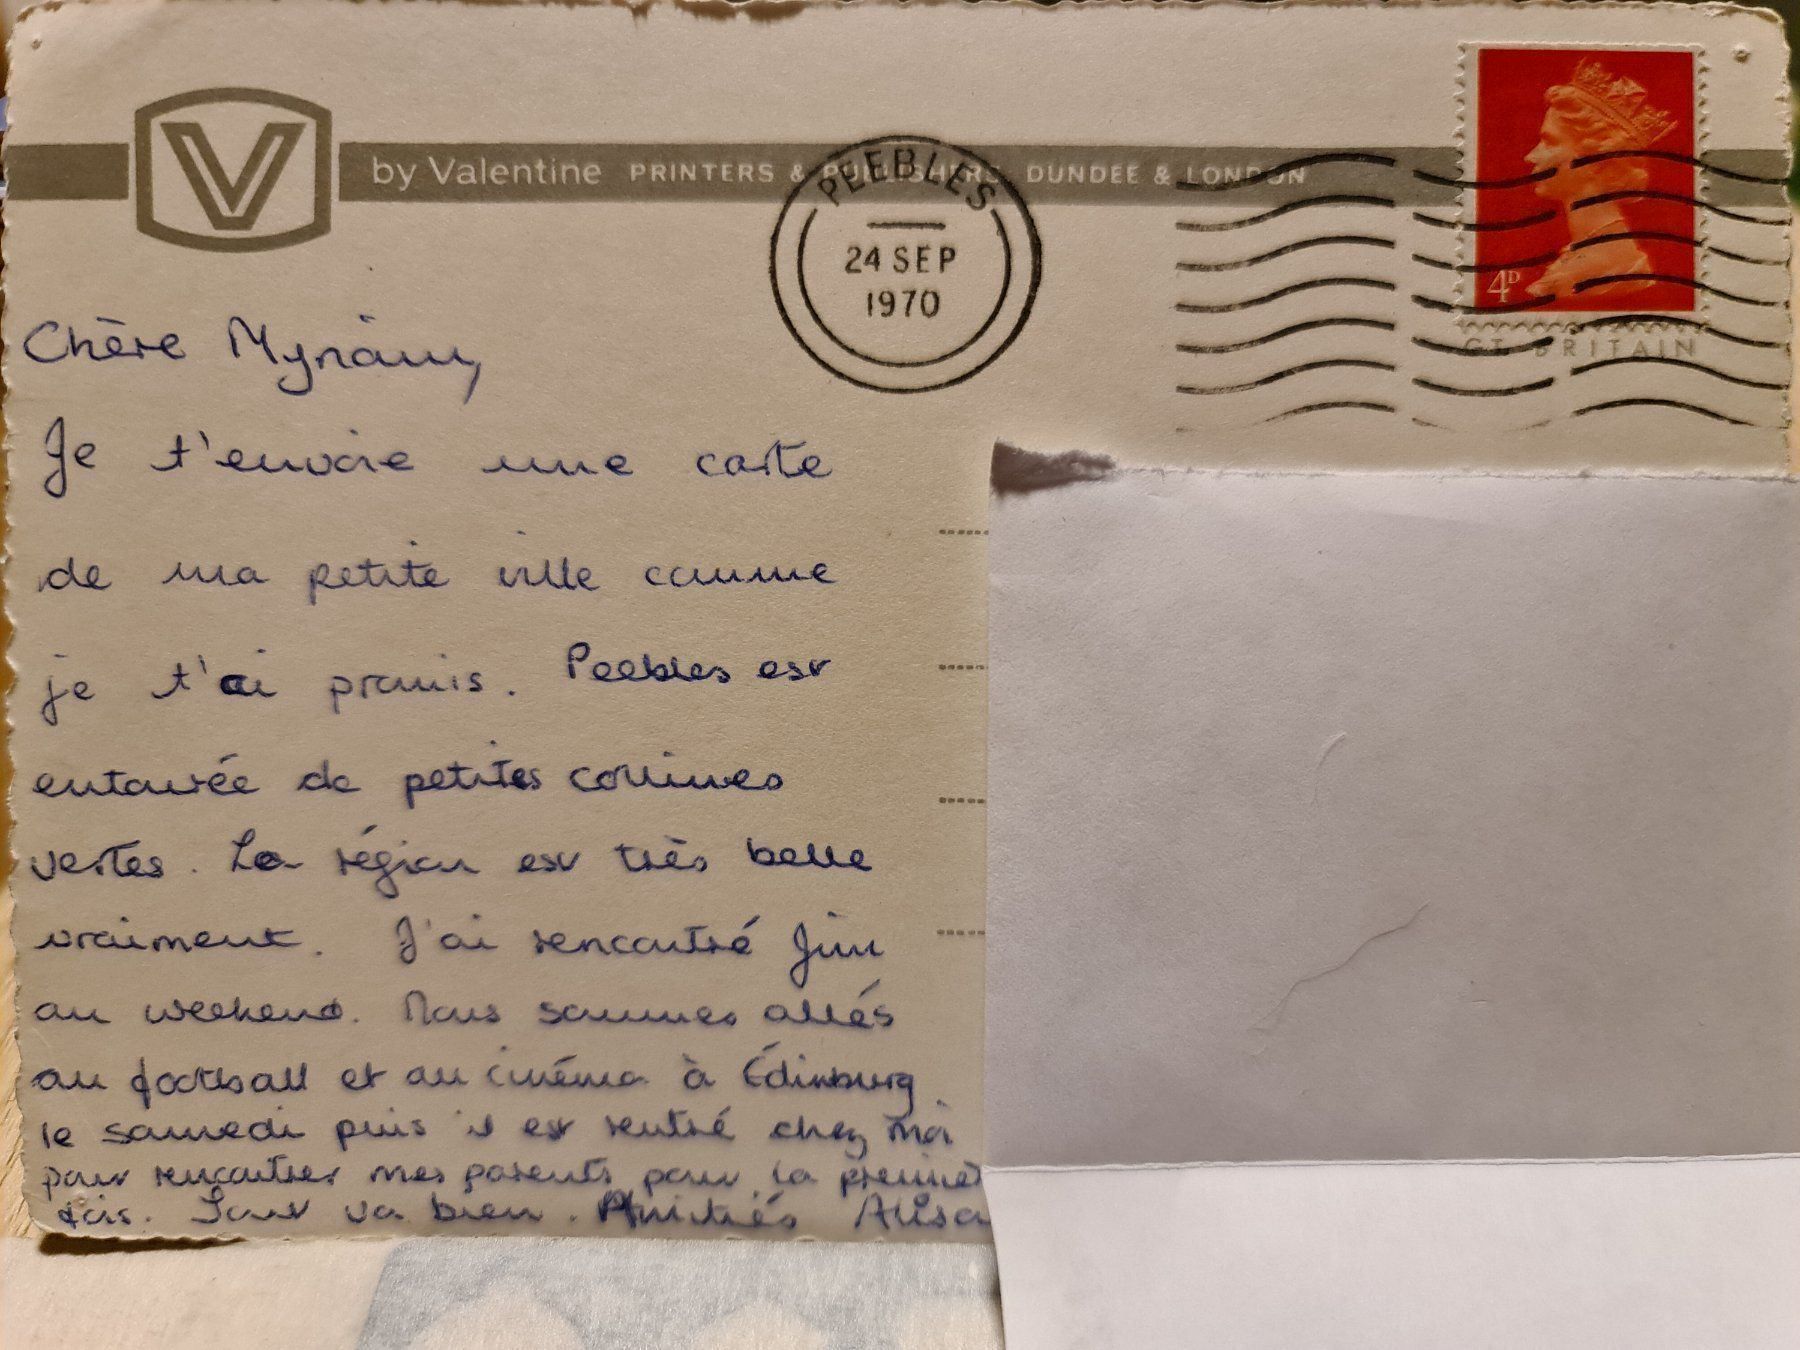 V
by Valentine PRINTERS & PUBLISHERS, DUNDEE & LONDON
PEEBLES
24 SEP
1970
4D
GT. BRITAIN
Chère Myriam,
Je t'envoie une carte
de ma petite ville comme
je t'ai promis. Peebles est
entourée de petites collines
vertes. La région est très belle
vraiment. J'ai rencontré Jim
au weekend. Nous sommes allés
au football et au cinéma à Édinburg
le samedi puis il est rentré chez moi
pour rencontrer mes parents pour la premier
fois. Tout va bien. Amitiés Alisa